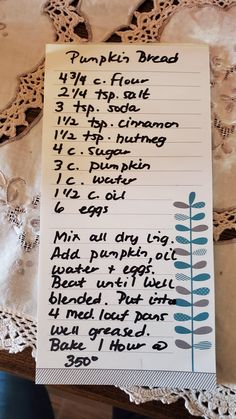 Pumpkin Bread
4 3/4 c. flour
2 1/4 tsp. salt
3 tsp. soda
1 1/2 tsp. cinnamon
1 1/2 tsp. nutmeg
4 c. sugar
3 c. pumpkin
1 c. water
1 1/2 c. oil
6 eggs
Mix all dry ing.
Add pumpkin, oil
water + eggs.
Beat until well
blended. Put into
4 med. loaf pans
well greased.
Bake 1 Hour @
350°